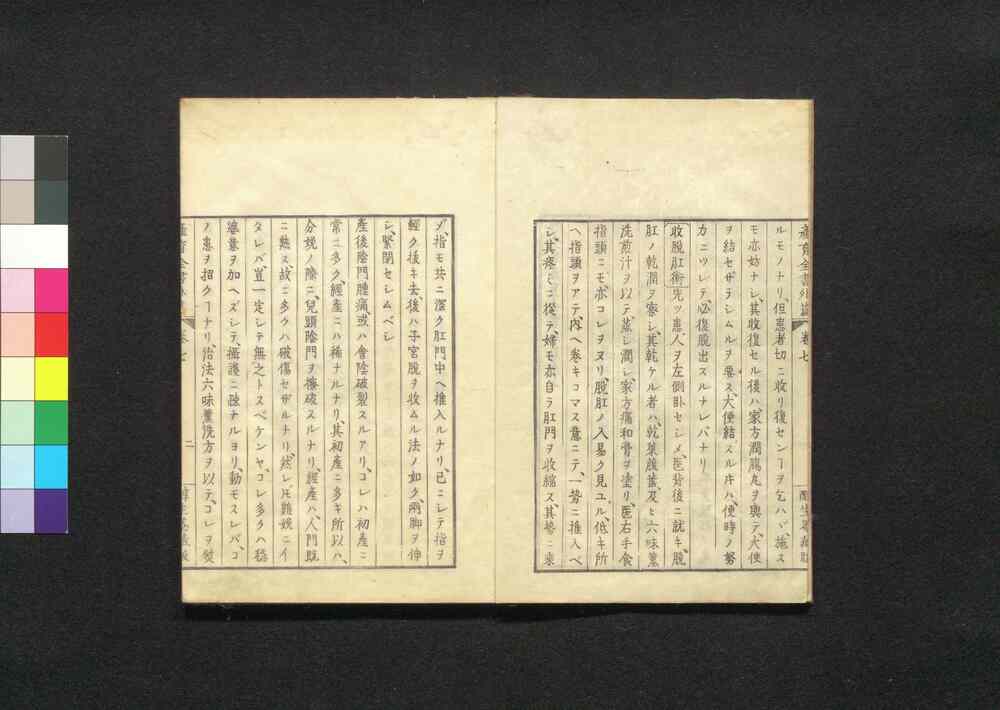 ルモノナリ、但患者切ニ收リ復センヿヲ乞ハヾ、施ス
モ亦妨ナシ、其收復セル後ハ、家方潤腸丸ヲ與テ、大便
ヲ結セザラシムルヲ要ス、大便結スルキハ、便時ノ努
カニツレテ、必復脱出スルナレバナリ
收脱肛術 先ツ患人ヲ左側卧セシメ、医背後ニ就キ、脱
肛ノ乾潤ヲ察シ、其乾ケル者ハ、乾葉腹蒸、及ヒ六味薫
洗煎汁ヲ以テ、蒸シ潤シ、家方痛和膏ヲ塗リ、医右手食
指頭ニモ亦コレヲヌリ、脱肛ノ入易ク見ユル、低キ所
ヘ指頭ヲアテ、内ヘ巻キコマス意ニテ、一勢ニ推入ベ
シ、其疼ミニ從テ、婦モ亦自ラ肛門ヲ收縮ス、其勢ニ乘
メ、指モ共ニ深ク肛門中ヘ推入ルナリ、已ニシテ指ヲ
輕ク拔キ去、後ハ子宮脱ヲ收ムル法ノ如ク、兩脚ヲ伸
シ、緊閉セシムベシ
産後陰門腫痛、或ハ會陰破裂スルアリ、コレハ初産ニ
常ニ多ク、經産ニハ稀ナルナリ、其初産ニ多キ所以ハ、
分娩ノ際ニ、兒頭陰門ヲ擦破スルナリ、經産ハ、人門既
ニ熟ス故ニ、多クハ破傷セザルナリ、然シ𪜈難娩ニイ
タレバ、豈一定シテ無之トスベケンヤ、コレ多クハ穏
婆意ヲ加ヘズシテ、攝護ニ疎ナルヨリ、動モスレバ、コ
ノ患ヲ招クヿナリ、治法六味薫洗方ヲ以テ、コレヲ熨
卷七
二